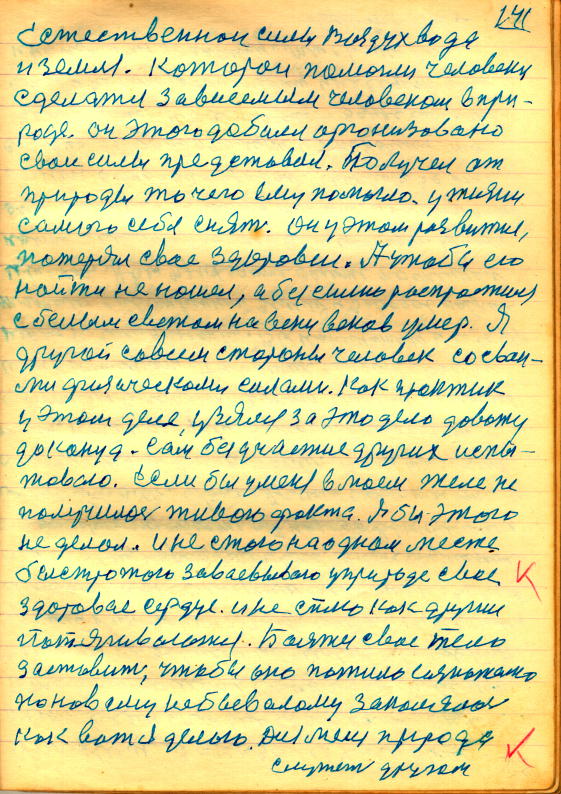 141
Естественной силы Воздух вода
и земля. Которои помогли человеку
сделатся зависемым человеком в при-
роде. он этого добился организовано
свои силы представил. Получел от
природы то чего ему помогло. у жизни
самого себя снят. Он у этом развитии,
потерял свое здоровеи. А чтобы его
найти не нашел, а бессильно распростился
с белым светом на веки веков умер. Я
другой совсем стороны человек со сваи-
ми физическоми силами. Как практик
у этом деле, узялся за это дело довожу
до конца. Сам без участие других испы-
товаю. Если бы у меня в моем теле не
получилось живого факта. Я бы этого
не делал. И не стою на одном месте
быстротого заваевываю у природе свое
здоровае сердце. и не сплю как другие
Потягиваются. Боятся свое тело
заставит, чтобы оно пожило
по новому небывалому законом
как вотя делаю. Для меня природа
служит другом
К
К